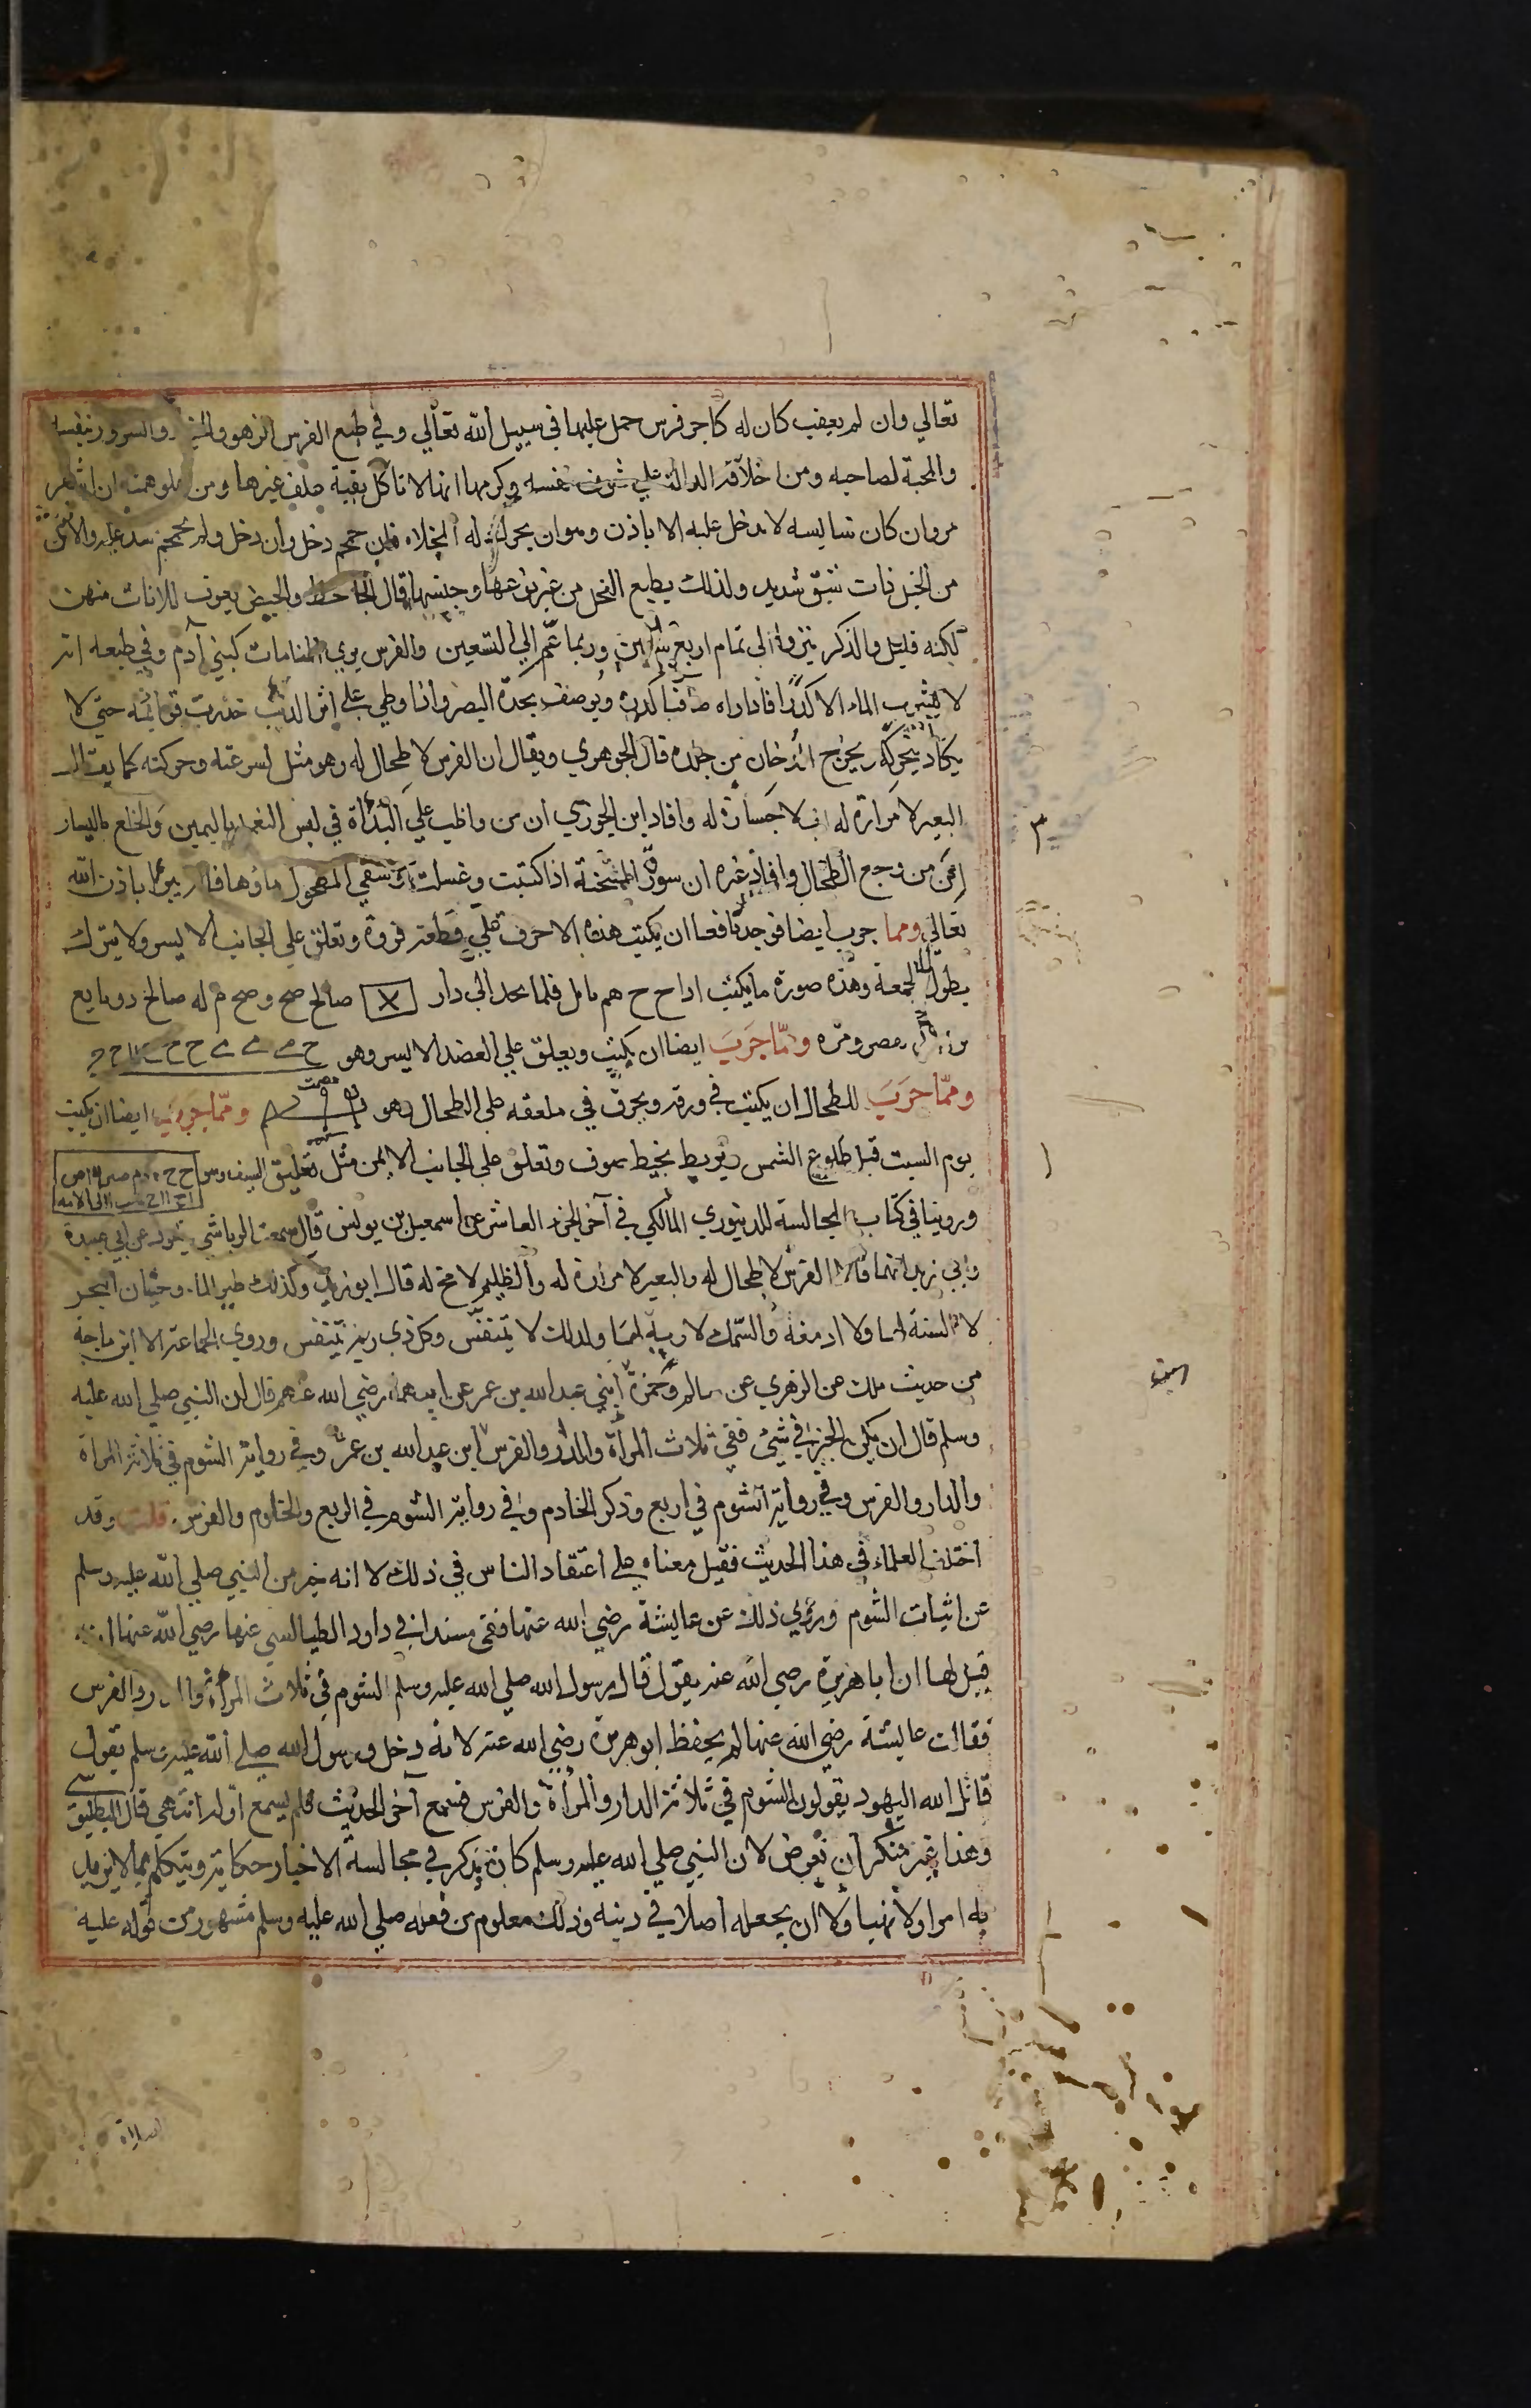 تعالي وان لم يعقب كان له كاجر فرس حمل عليها في سبيل الله تعالي وفي طبع الفرس الزهو والسرور بنفسه
والمحبة لصاحبه ومن اخلاقه الدالة علي شرف نفسه وكرمها انه لا تاكل بقية علف غيرها ومن علو همته ان اشقر
مروان كان سايسه لا يدخل عليه الا باذن وهو ان يحرك له المخلاه فان حمحم دخل وان دخل ولم يحمحم شد عليه والانثي
من الخيل ذات شبق شديد ولذلك يطيع الفحل من غير نوعها وجنسها قال الجاحظ والحيض يعرض للاناث منهن
لكنه قليل والذكر ينزوا الي تمام اربع سنين وربما عمّر الي التسعين والفرس يري المنامات كبني آدم وفي طبعه انه
لا يشرب الماء الا كدرًا فاذا راه صافيا كدره ويوصف بحدّة البصر واذا وطي علي اثر الذيب خدرت قوائمه حتي لا
يكاد يتحرك ويخرج الدخان من جلده قال الجوهري ويقال ان الفرس لا طحال له وهو مثل لسرعته وحركته كما يقال
البعير لا مرارة له اي لا جسارة له وافاد ابن الجوزي ان من واظب علي البداة في لبس النعل باليمين والخلع باليسار
امن من وجع الطحال وافاد غيره ان سورة الممتحنة اذا كتبت وغسلت وسقي المطحول ماؤها فانه يبرا باذن الله
تعالي ومما جرب ايضا فوجد نافعا ان يكتب هذه الاحرف علي قطعة فروة وتعلق علي الجانب الايسر ولا يترك
بطول الجمعة وهذه صورة ما يكتب اداح ح هم مايل فلما محد الي دار X صالح صح وصح م له صالخ دومايع
ومما جَرَبَ ايضا ان يكتب ويعلق علي العضد الايسر وهو
ومما جَرَبَ للطحال ان يكتب في ورقه ويحرق في ملعقه علي الطحال وهو ومما جرب ايضا ان يكتب
يوم السبت قبل طلوع الشمس ويربط بخيط صوف وتعلق علي الجانب الايمن مثل تعليق السيف
وروينا في كتاب المجالسة للدينوري المالكي في آخر الجزء العاشر عن اسمعيل بن يونس قال سمعت الرياشي يقول عن ابي عبيدة
وابي زيد انهما قالا الفرس لا طحال له والبعير لا مرارة له والظليم لا مخ له قال ابو زيد وكذلك طير الماء وحيتان البحر
لا السنة لها ولا ادمغه والسمك لا رية لها ولذلك لا يتنفس وكل ذي ريه يتنفس وروي الجماعة الا ابن ماجة
من حديث ملك عن الزهري عن سالم وحمزة ابني عبد الله بن عمر عن ابيهما رضي الله عنهم قال ان النبي صلي الله عليه
وسلم قال ان يكن الخير في شئ ففي ثلاث المرأة والدار والفرس ابن عبد الله بن عمر وفي رواية الشوم في ثلاثة المرأة
والدار والفرس وفي رواية الشوم في اربع وذكر الخادم وفي رواية الشوم في الربع والخادم والفرس قلت وقد
اختلف العلماء في هذا الحديث فقيل معناه علي اعتقاد الناس في ذلك لا انه خبر من النبي صلي الله عليه وسلم
عن اثبات الشوم وروي ذلك عن عايشة رضي الله عنها ففي مسند ابي داود الطيالسي عنها رضي الله عنها
قيل لها ان ابا هريرة رضي الله عنه يقول قال رسول الله صلي الله عليه وسلم الشوم في ثلاث المرأة والدار والفرس
فقالت عايشة رضي الله عنها لم يحفظ ابو هريرة رضي الله عنه لانه دخل ورسول الله صلي الله عليه وسلم يقول
قاتل الله اليهود يقولون الشوم في ثلاثة الدار والمرأة والفرس فسمع آخر الحديث فلم يسمع اوله انتهي قال البطليوسي
وهذا غير منكر ان تعرض لان النبي صلي الله عليه وسلم كان يذكر في مجالسة الاخبار حكاية ويتكلم بما لا يريد
به امرا ولا نهيا ولا ان يجعله اصلا في دينه وذلك معلوم من فعله صلي الله عليه وسلم مشهور من قوله عليه